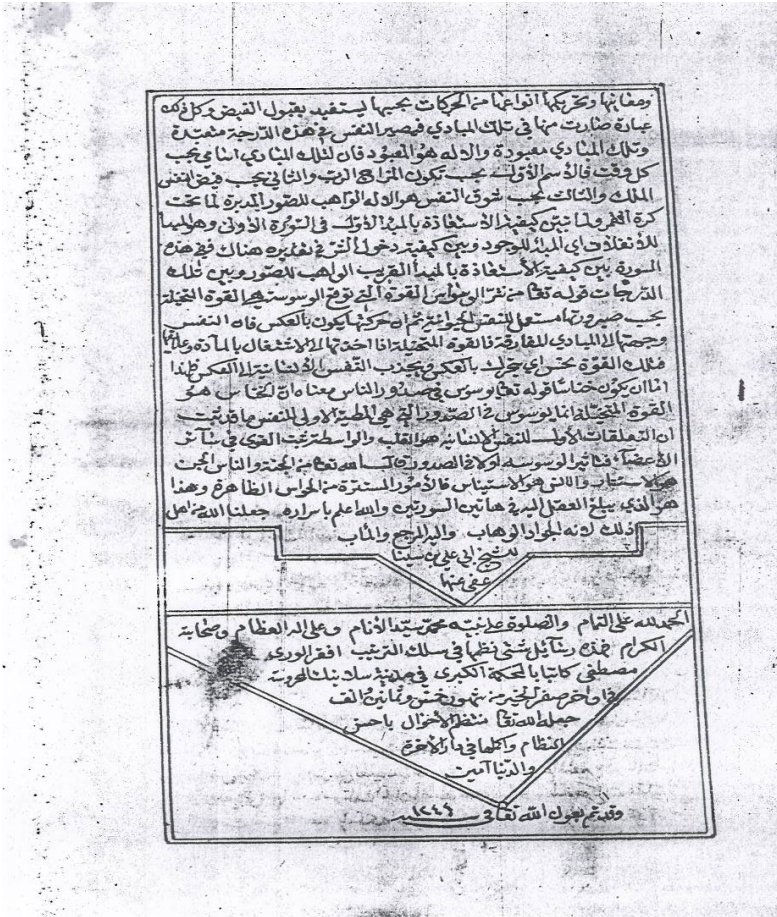 وصفاتها وتحريكها انواعها من الحركات بحسبها ليستفيد بقبول الفيض وكل ذلك
عبارة صارت منها في تلك المبادي فيصير النفس في هذه الدرجة متعبدة
وتلك المبادي معبودة والاله هو المعبود فان لتلك المبادي اسامي بحسب
كل وقت فالاسم الاول بحسب تكون المزاج الرب والثاني بحسب فيض النفس
الملك والثالث بحسب شوق النفس هو الاله الواهب للصور المدبرة لما تحت
كرة القمر ولما تبين كيفية الاستعاذة بالمبدأ الاول في السورة الاولى وهو
اي المبدأ للوجود وبين كيفية دخول الشر في تقديره هناك ففي هذه
السورة بين كيفية الاستعاذة بالمبدأ القريب الواهب للصور وبين تلك
الدرجات قوله تعا من شر الوسواس القوة التي توقع الوسوسة هي القوة المتخيلة
بحسب صيرورتها مستعملة للنفس الحيوانية ثم ان حركتها يكون بالعكس فان النفس
وجهتها الى المبادي المفارقة فالقوة المتخيلة اذا اخذتها الى الاشتغال بالمادة وعلائقها
فتلك القوة تخنس اي تتحرك بالعكس ويجذب النفس الانسانية الى العكس فلهذا
خناسا قوله تعا يوسوس في صدور الناس معناه ان الخناس هو
القوة المتخيلة انما يوسوس في الصدور التي هي المطية الاولى للنفس ما قد ثبت
ان المتعلقات الاول للنفس الانسانية هو القلب والواسطة تثبت القوى في سائر
الاعضاء فتاثير الوسوسة اولا في الصدور تعا من الجنة والناس الجن
هو الاستتار والانس هو الاستيناس فالامور المستترة من الحواس الظاهرة وهذا
هو الذي يبلغ العقل اليه في هاتين السورتين والله اعلم باسراره جعلنا الله من اهل
ذلك لانه الجواد الوهاب واليه المرجع والمأب
للشيخ ابي علي بن سينا
عفي عنها
الحمد لله على التمام والصلوة على نبيه محمد سيد الانام وعلى اله العظام وصحابة
الكرام هذه رسائل شتى نظمها في سلك الترتيب افقر الورى
مصطفى كاتبا بالمحكمة الكبرى في مدينة سلانيك المحروسة
في اواخر صفر الخير من شهور خمس وثمانين والف
منتظم الاحوال باحسن
النظام واكملها في دار الاخرة
والدنيا امين
وقد تم بعون الله تعالى ١٢٤٤